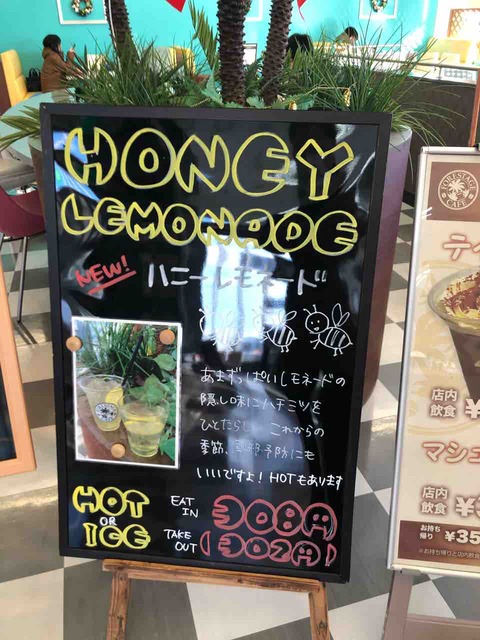 HONEY
LEMONADE
NEW! ハニーレモネード
あまずっぱいレモネードの
隠し味にハチミツを
ひとたらし これからの
季節、風邪予防にも
いいですよ! HOTもあります
HOT
OR
ICE
EAT
IN
308円
TAKE
OUT
(302円)
FORESTAGE
CAFE
ティ
店内
飲食 ¥
マシュ
店内
飲食 ¥3
お持ち
帰り ¥35
※お持ち帰りと店内飲食